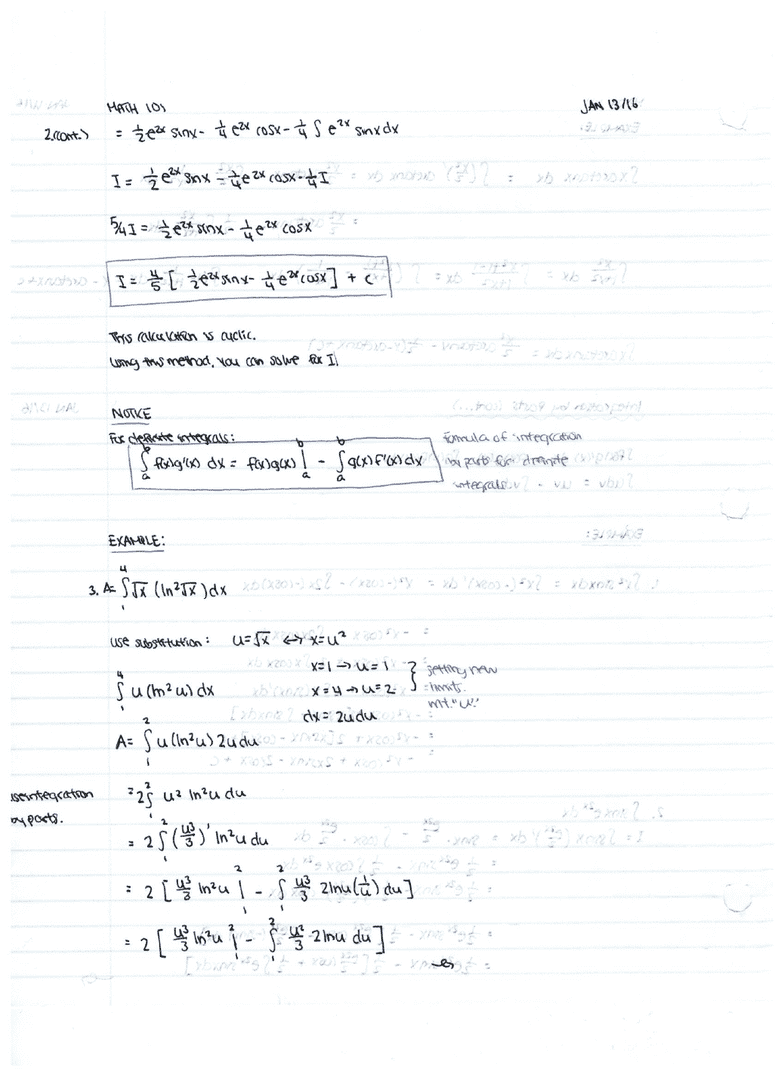 MATH 105
JAN 13/16
2.(cont.) = ½e²ˣ sinx - ¼ e²ˣ cosx - ¼ ∫ e²ˣ sinx dx
I = ½ e²ˣ sinx - ¼ e²ˣ cosx - ¼ I
5/4 I = ½ e²ˣ sinx - ¼ e²ˣ cosx
I = 4/5 [ ½ e²ˣ sinx - ¼ e²ˣ cosx ] + C
This calculation is cyclic.
Using this method, you can solve for I.
NOTICE
For definite integrals:
∫ₐᵇ f(x)g'(x) dx = f(x)g(x) |ₐᵇ - ∫ₐᵇ g(x)f'(x) dx
formula of integration
by parts for definite
integrals
EXAMPLE:
3. A = ∫₁⁴ √x (ln²√x) dx
use substitution: u = √x ↔ x = u²
x = 1 → u = 1
x = 4 → u = 2
dx = 2u du
} setting new
limits
w.r.t. "u."
∫₁⁴ u (ln²u) dx
A = ∫₁² u (ln²u) 2u du
use integration
by parts.
= 2∫₁² u² ln²u du
= 2 ∫₁² (u³/3)' ln²u du
= 2 [ u³/3 ln²u |₁² - ∫₁² u³/3 2lnu (1/u) du ]
= 2 [ u³/3 ln²u |₁² - ∫₁² u²/3 2lnu du ]
→